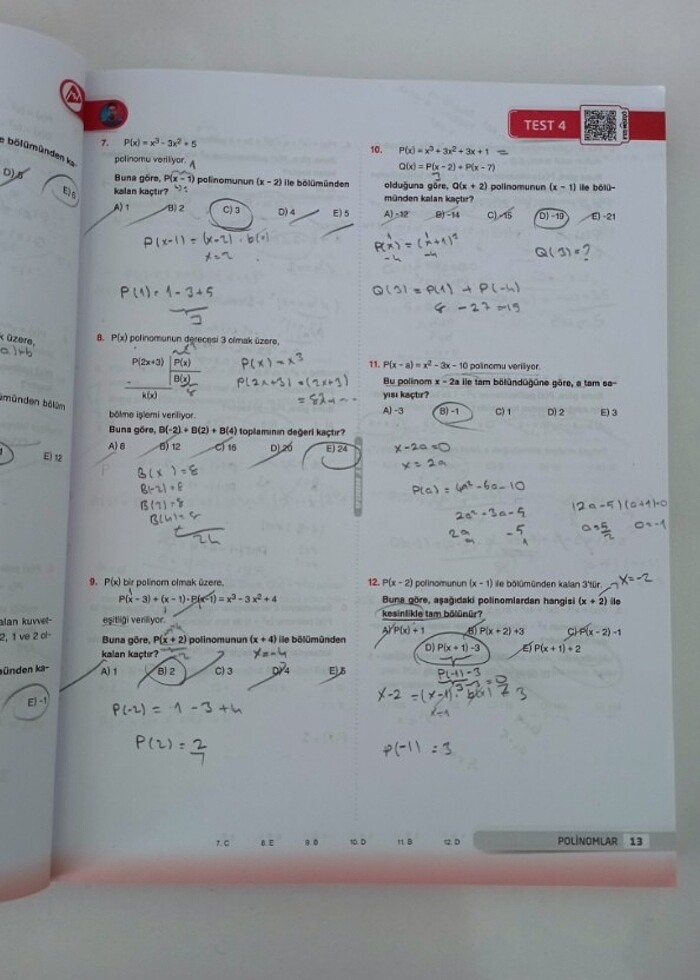 TEST 4
e bölümünden ka-
E) 6
k üzere,
ümünden bölüm
E) 12
alan kuvvet-
2, 1 ve 2 ol-
münden ka-
E) -1
7. P(x) = x³ - 3x² + 5
polinomu veriliyor.
Buna göre, P(x – 1) polinomunun (x – 2) ile bölümünden
kalan kaçtır?
A) 1 B) 2 C) 3 D) 4 E) 5
P(x-1) = (x-2) . b(x)
x=2
P(1) = 1-3+5
3
8. P(x) polinomunun derecesi 3 olmak üzere,
P(2x+3) P(x)
B(x)
8
–
k(x)
P(x) = x³
P(2x+3) = (2x+3)
= 8x
bölme işlemi veriliyor.
Buna göre, B(-2) + B(2) + B(4) toplamının değeri kaçtır?
A) 8 B) 12 C) 16 D) 20 E) 24
B(x) = 8
B(-2) = 8
B(2) = 8
B(4) = 8
24
9. P(x) bir polinom olmak üzere,
P(x – 3) + (x – 1) · P(x – 1) = x³ – 3x² + 4
eşitliği veriliyor.
Buna göre, P(x + 2) polinomunun (x + 4) ile bölümünden
kalan kaçtır?
-2 x=-4
A) 1 B) 2 C) 3 D) 4 E) 5
P(-2) = 1-3+4
P(2) = 2
10. P(x) = x³ + 3x² + 3x + 1 =
Q(x) = P(x – 2) + P(x – 7)
3
olduğuna göre, Q(x + 2) polinomunun (x – 1) ile bölü-
münden kalan kaçtır?
A) -12 B) -14 C) -15 D) -19 E) -21
P(x) = (x+1)³
-4 -4
Q(3) = ?
Q(3) = P(1) + P(-4)
8 - 27 = -19
11. P(x – a) = x² – 3x – 10 polinomu veriliyor.
Bu polinom x – 2a ile tam bölündüğüne göre, a tam sa-
yısı kaçtır?
A) -3 B) -1 C) 1 D) 2 E) 3
x-2a=0
x = 2a
P(a) = 4a²-6a-10
2a²-3a-5
2a -5
a 1
(2a-5)(a+1)=0
a=5/2 a=-1
12. P(x – 2) polinomunun (x – 1) ile bölümünden kalan 3'tür.
x=-2
Buna göre, aşağıdaki polinomlardan hangisi (x + 2) ile
kesinlikle tam bölünür?
A) P(x) + 1 B) P(x + 2) +3 C) P(x – 2) -1
D) P(x + 1) -3 E) P(x + 1) + 2
P(-1)-3
3-3=0
x-2 = (x-1) . b(x) + 3
x=1
P(-1) = 3
7. C 8. E 9. B 10. D 11. B 12. D
POLİNOMLAR 13